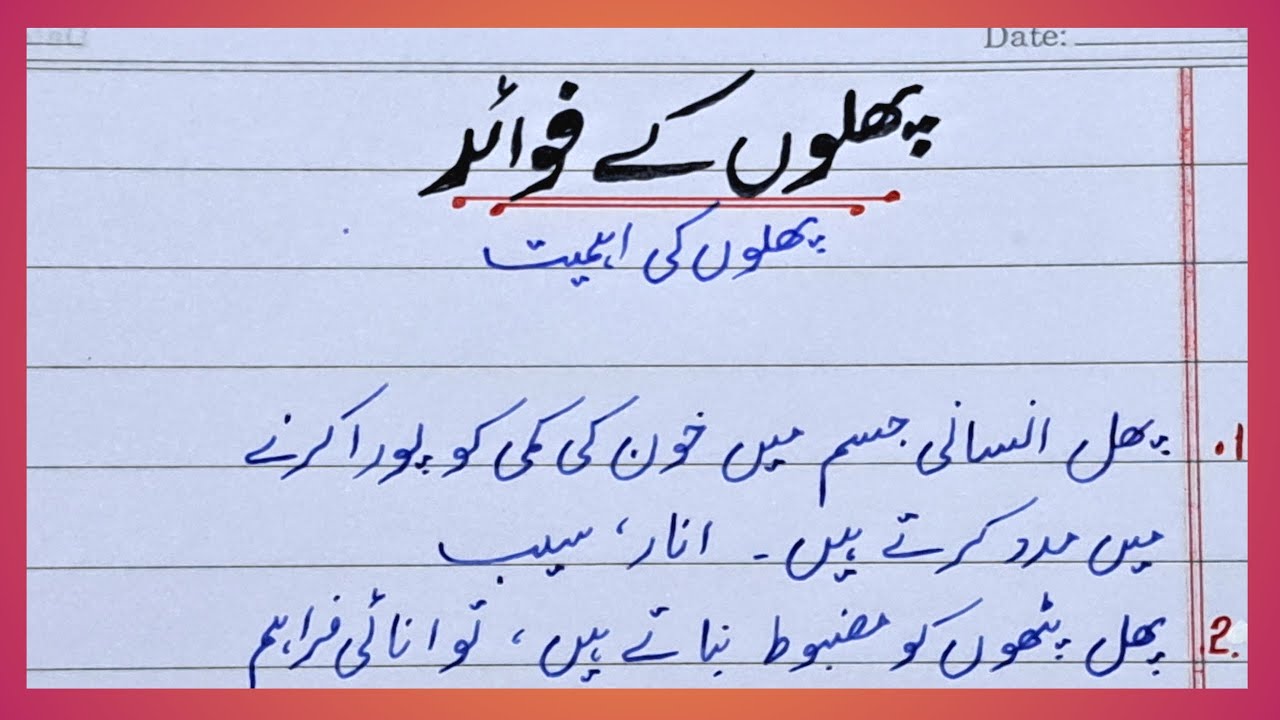 Date:
پھلوں کے فوائد
پھلوں کی اہمیت
1. پھل انسانی جسم میں خون کی کمی کو پورا کرنے
میں مدد کرتے ہیں۔ انار، سیب
2. پھل پٹھوں کو مضبوط بناتے ہیں، توانائی فراہم